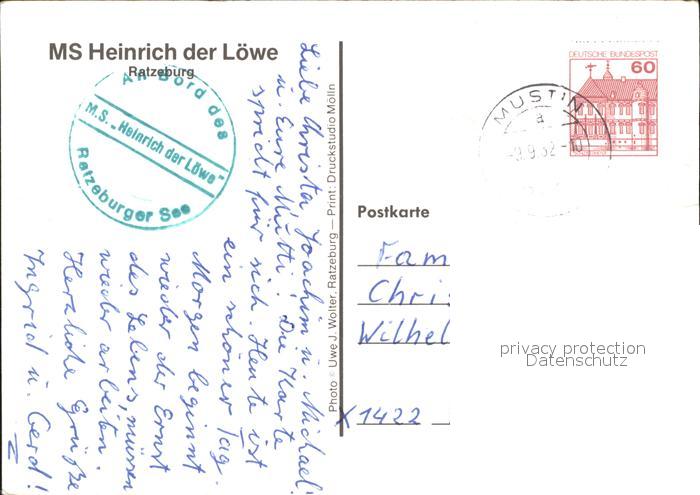 MS Heinrich der Löwe
Ratzeburg
An Bord des
M.S. „Heinrich der Löwe"
Ratzeburger See
Liebe Christa, Joachim u. Michael!
u. Eure Mutti! Die Karte
spricht für sich. Heute ist
ein schöner Tag.
Morgen beginnt
wieder der Ernst
des Lebens, müssen
wieder arbeiten.
Herzliche Grüße
Ingrid u. Gerd!
Photo: Uwe J. Wolter, Ratzeburg — Print: Druckstudio Mölln
DEUTSCHE BUNDESPOST
60
MUSTIN
a
-9.9.82-
Postkarte
Fam
Chri
Wilhel
X1422
privacy protection
Datenschutz